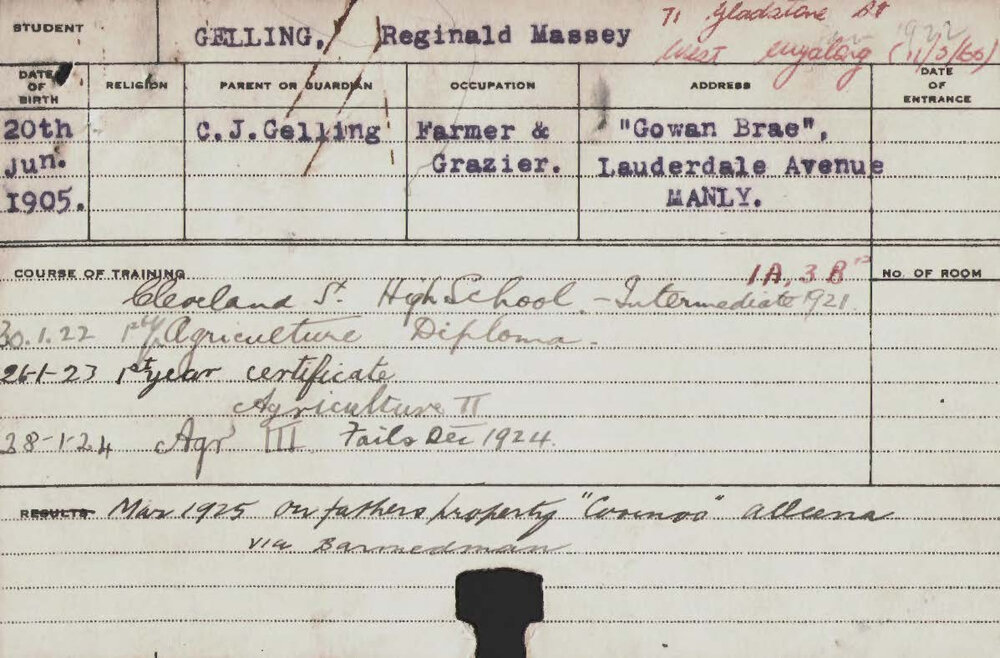 STUDENT GELLING, Reginald Massey
71 Gladstone St
West Wyalong (11/3/66)
1922
DATE OF BIRTH RELIGION PARENT OR GUARDIAN OCCUPATION ADDRESS DATE OF ENTRANCE
20th C.J.Gelling Farmer & "Gowan Brae",
Jun. Grazier. Lauderdale Avenue
1905. MANLY.
COURSE OF TRAINING 1A, 3B No. OF ROOM
Cleveland St. High School - Intermediate 1921.
30.1.22 Agriculture Diploma.
26-1-23 1st year certificate
Agriculture II
28-1-24 Agr III Fails Dec 1924.
RESULTS Mar 1925 On fathers property Alleena
via Barmedman